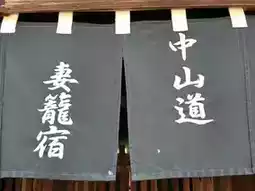 中山道
妻籠宿